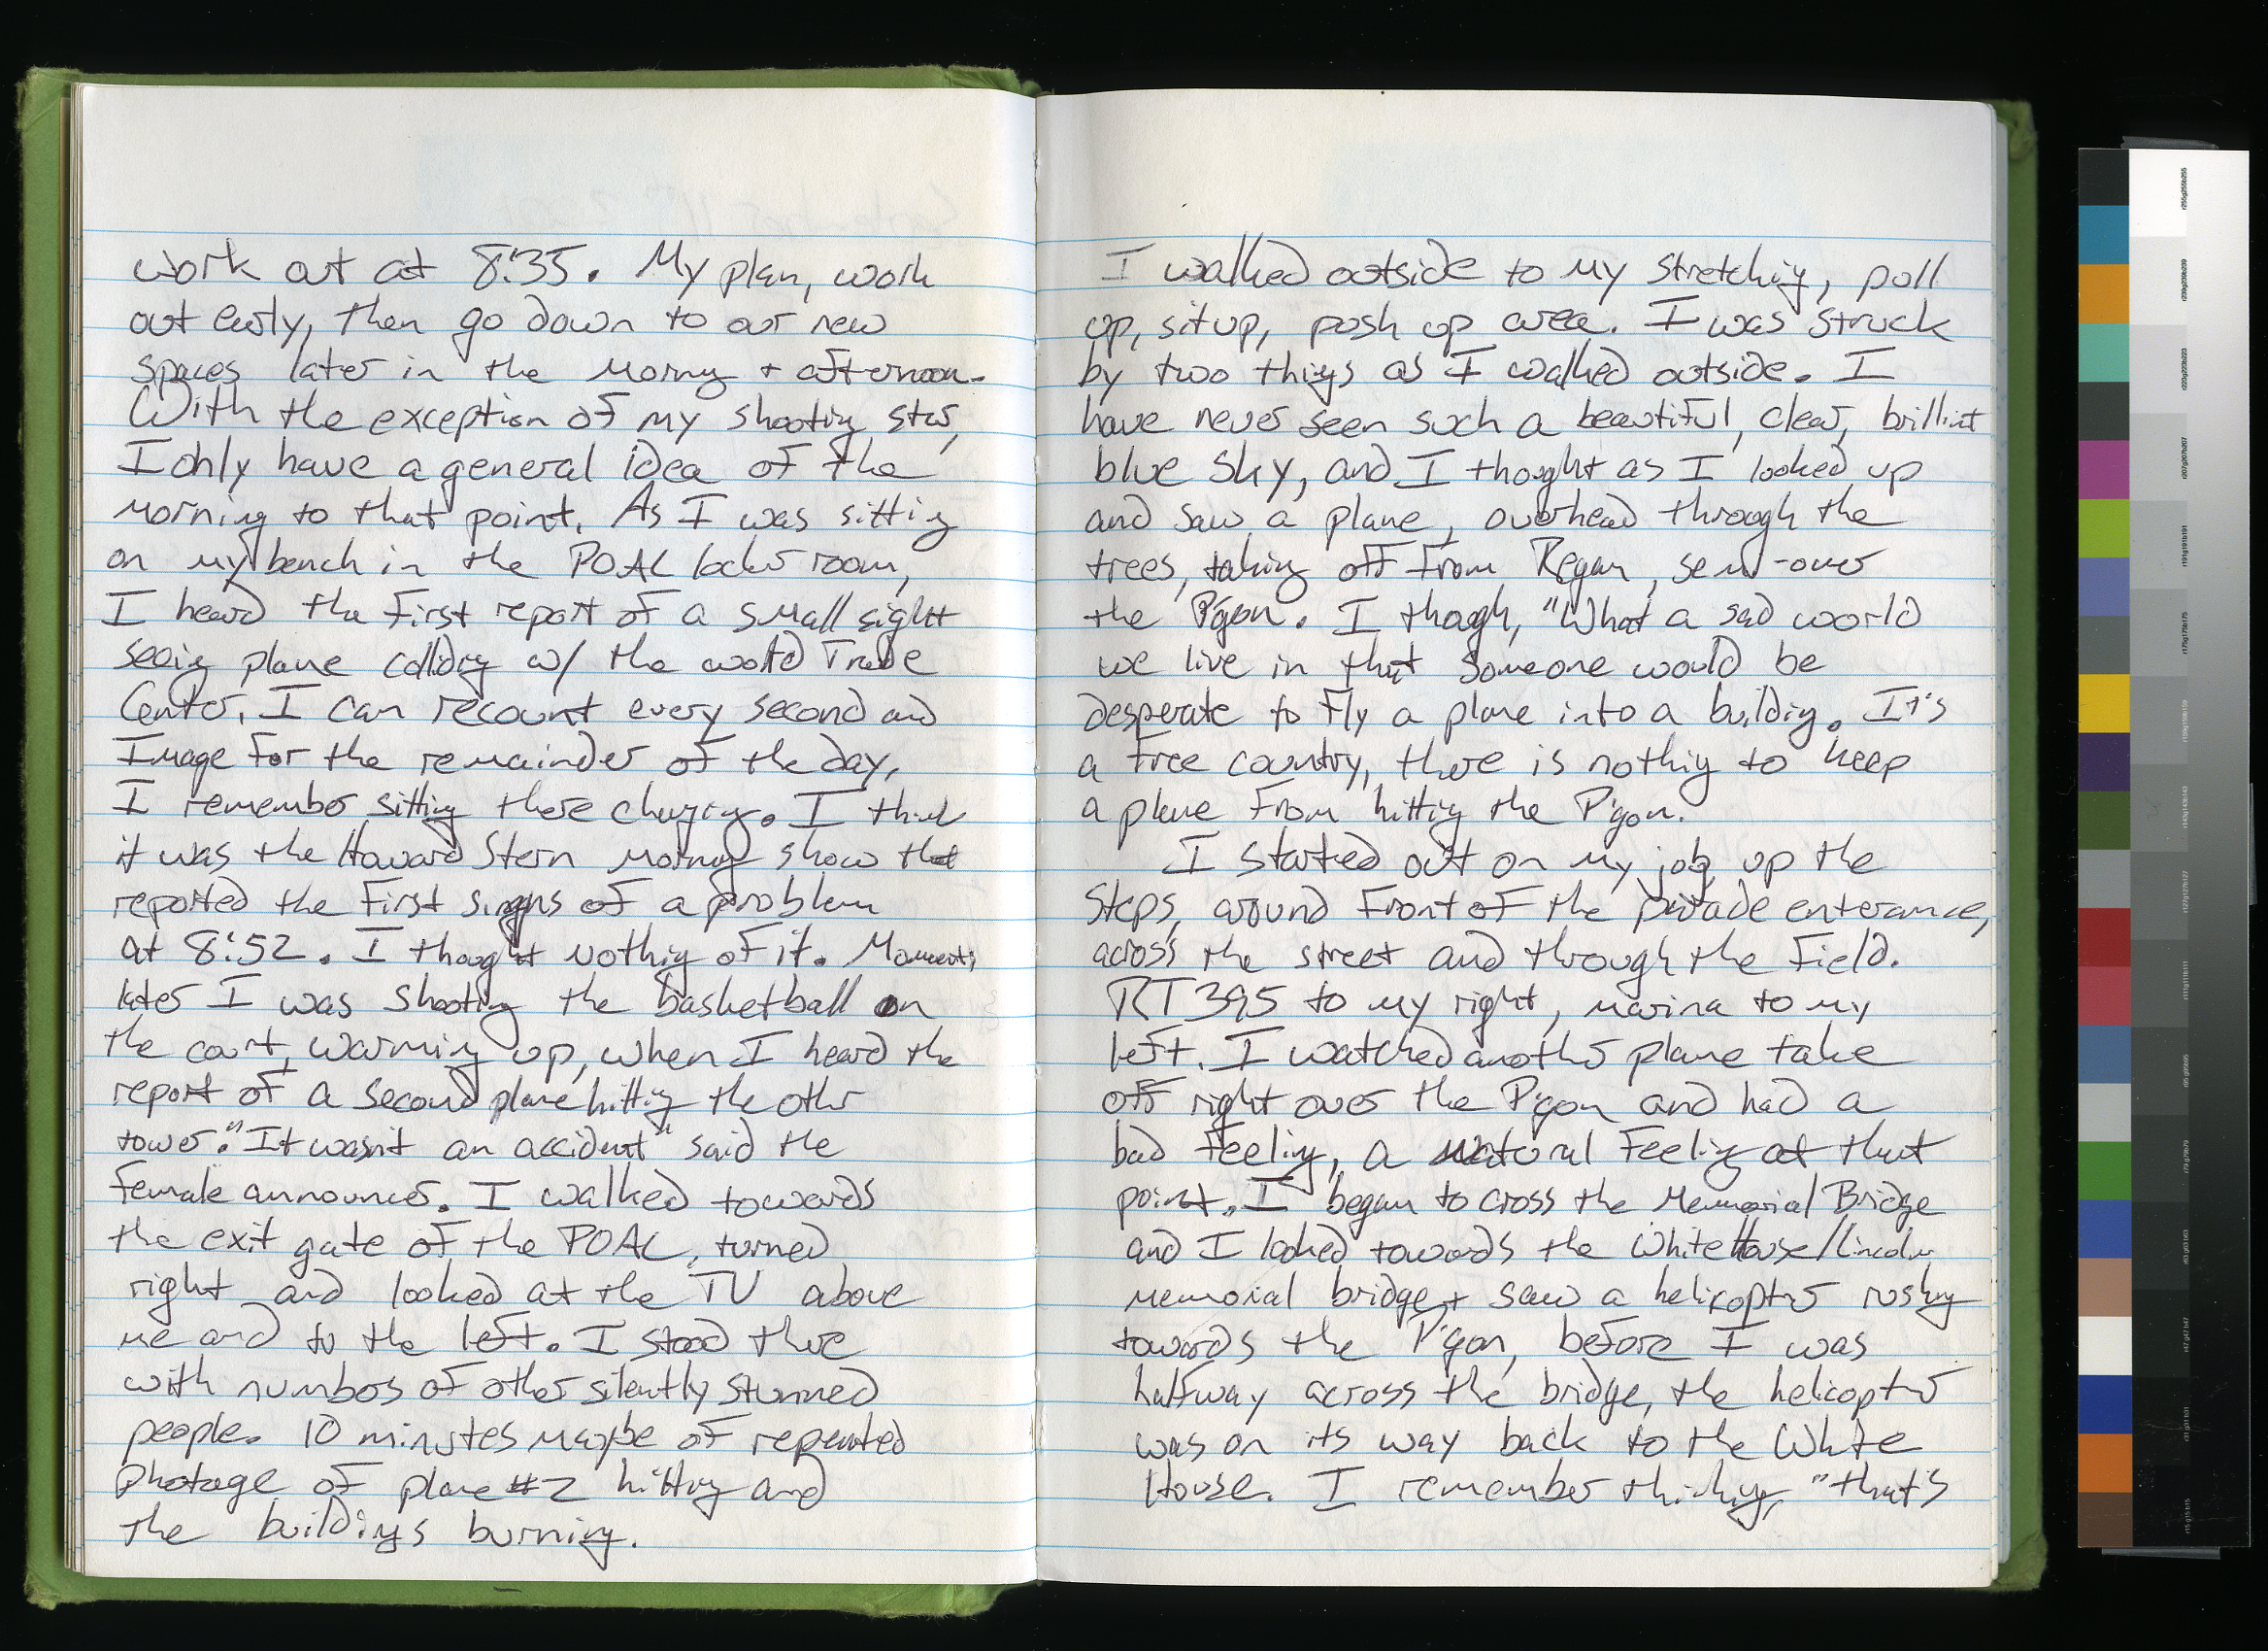 work out at 8:35. My plan, work
out early, then go down to our new
spaces later in the morng + afternoon.
With the exception of my shooting star,
I only have a general idea of the
morning to that point. As I was sitting
on my bench in the POAC locker room,
I heard the first report of a small sight
seeig plane collidig w/ the world Trade
Center. I can recount every second and
Image for the remainder of the day.
I remember sitting there changing. I think
it was the Howard Stern morng show that
reported the first signs of a problem
at 8:52. I thought nothig of it. Moments
later I was shooting the basketball on
the court, warming up, when I heard the
report of a second plane hittig the other
tower. "It wasn't an accident" said the
female announcer. I walked towards
the exit gate of the POAC, turned
right and looked at the TV above
me and to the left. I stood there
with numbers of other silently stunned
people. 10 minutes maybe of repeated
photage of plane #2 hitting and
the buildings burning.
I walked outside to my stretching, pull
up, situp, push up area. I was struck
by two things as I walked outside. I
have never seen such a beautiful, clear, brilliant
blue sky, and I thought as I looked up
and saw a plane, overhead through the
trees, taking off from Regan, semi-over
the P'gon. I though, "What a sad world
we live in that someone would be
desperate to fly a plane into a buildig. It's
a free country, there is nothig to keep
a plane from hittig the P'gon.
I started out on my jog, up the
steps, around front of the parade enterance,
across the street and through the field.
RT 395 to my right, marina to my
left. I watched another plane take
off right over the P'gon and had a
bad feeling, a natural feeling at that
point. I began to cross the Memorial Bridge
and I looked towards the White House/Lincoln
memorial bridge + saw a helicopter rushing
towards the P'gon, before I was
halfway across the bridge, the helicopter
was on its way back to the White
House. I remember thinking, "that's